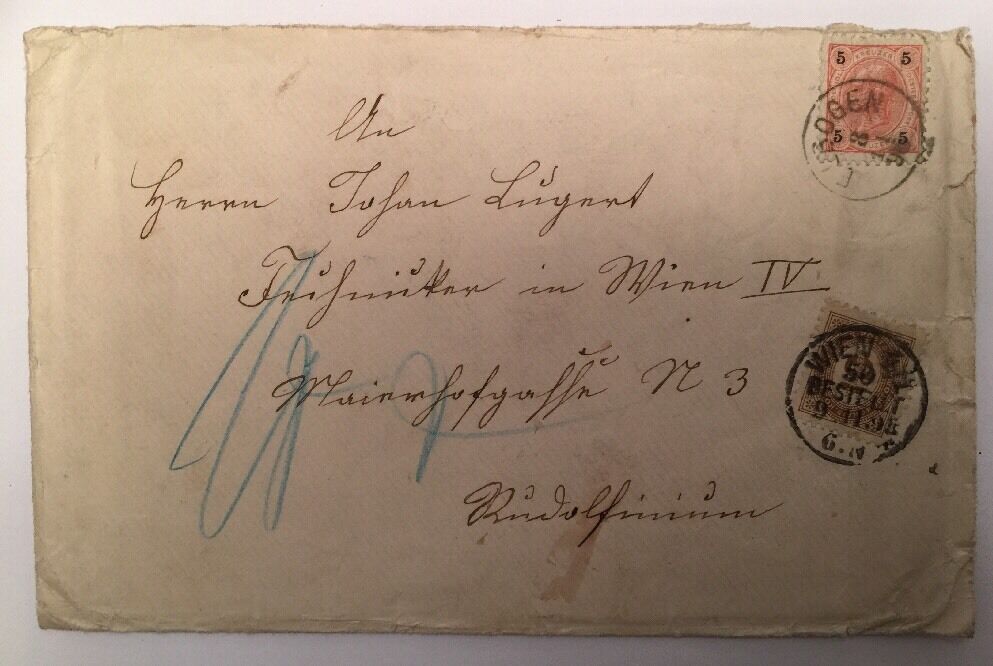 An
Herrn Johan Lugert
Techniker in Wien IV
Maierhofgasse N 3
Rudolfinium
5 5
KREUZER
5 5
OGEN
8
WIEN
59
BESTELLT
9 11 98
6. N